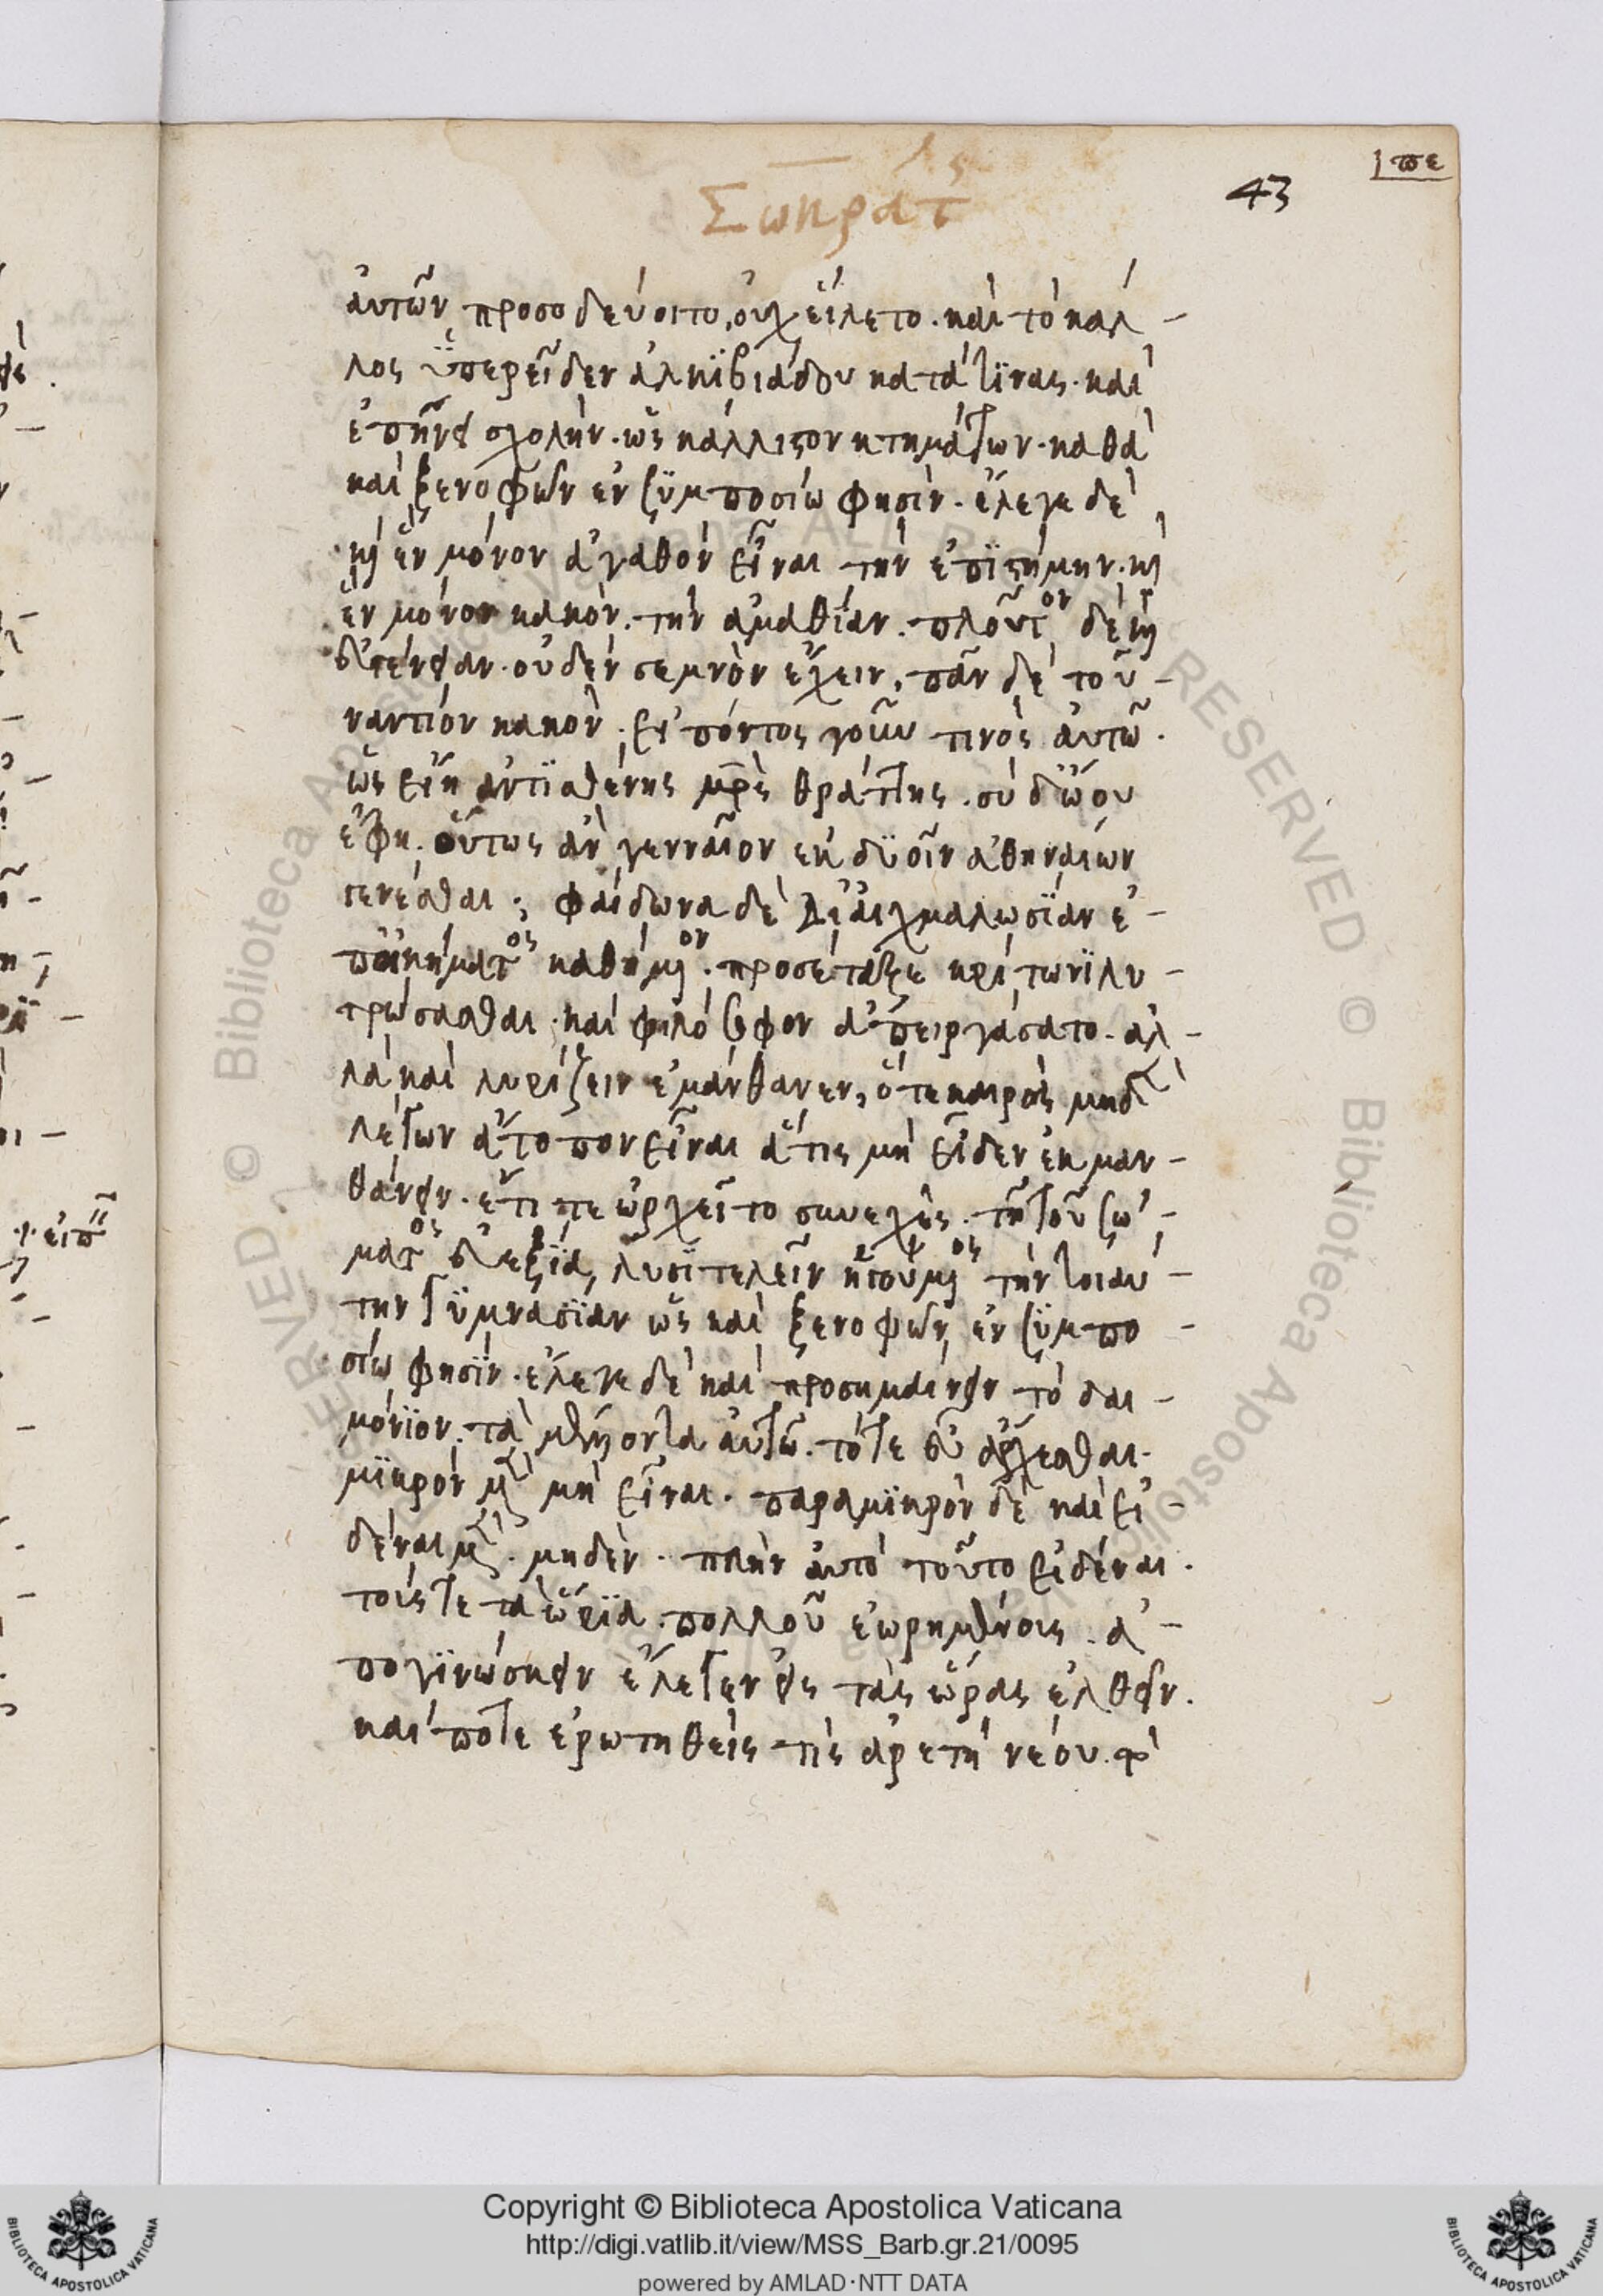 Σωκράτης
43
πε
αὐτῶν προσοδεύοιτο, οὐχ εἵλετο. καὶ τὸ κάλ-
λος ὑπερεῖδεν ἀλκϊβιάδου κατά τϊνας. καὶ
ἐπήνει σχολὴν. ὡς κάλλιστον κτημάτων. καθὰ
καὶ ξενοφῶν ἐν συμποσίω φησὶν. ἔλεγε δὲ
καὶ ἓν μόνον ἀγαθὸν εἶναι τὴν ἐπϊστήμην. καὶ
ἓν μόνον κακὸν. τὴν ἀμαθίαν. πλοῦτον δὲ καὶ
εὐγένειαν. οὐδὲν σεμνὸν ἔχειν, πᾶν δὲ τοὐ-
ναντίον κακὸν. εἰπόντος γοῦν τινὸς αὐτῶ.
ὡς εἴη ἀντϊσθένης μρὸς θράττης. σὺ δ' ὤου
ἔφη. οὕτως ἂν γενναῖον ἐκ δϋοῖν ἀθηναίων
γενέσθαι; φαίδωνα δὲ δι' αἰχμαλωσϊαν ἐ-
π' οἰκήματος καθήμενον. προσέταξε κρίτωνϊ λυ-
τρώσασθαι. καὶ φιλόσοφον ἀπειργάσατο. ἀλ-
λὰ καὶ λυρίζειν ἐμάνθανεν, ὅτε καιρὸς μηδὲν
λέγων ἄτοπον εἶναι ἅ τις μὴ εἶδεν ἐκμαν-
θάνειν. ἔτι τε ὠρχεῖτο συνεχὲς. τῆ τοῦ σώ-
ματος εὐεξία, λυσϊτελεῖν ἡγούμενος τὴν τοιαύ-
την γϋμνασϊαν ὡς καὶ ξενοφῶν ἐν συμπο-
σίω φησϊν. ἔλεγε δὲ καὶ προσημαίνειν τὸ δαι-
μόνϊον. τὰ μέλλοντα αὐτῶ. τό τε εὖ ἄρχεσθαι.
μϊκρὸν μὲν μὴ εἶναι. παραμϊκρὸν δὲ καὶ εἰ-
δέναι μὲν. μηδὲν. πλὴν αὐτὸ τοῦτο εἰδέναι.
τούς τε τὰ ὥρϊα. πολλοῦ ἐωρημένοις. ἀ-
πογϊνώσκειν ἔλεγεν εἰς τὰς ὥρας ἐλθεῖν.
καί ποτε ἐρωτηθεὶς τίς ἀρετὴ νέου. φὶ
Copyright © Biblioteca Apostolica Vaticana
http://digi.vatlib.it/view/MSS_Barb.gr.21/0095
powered by AMLAD·NTT DATA